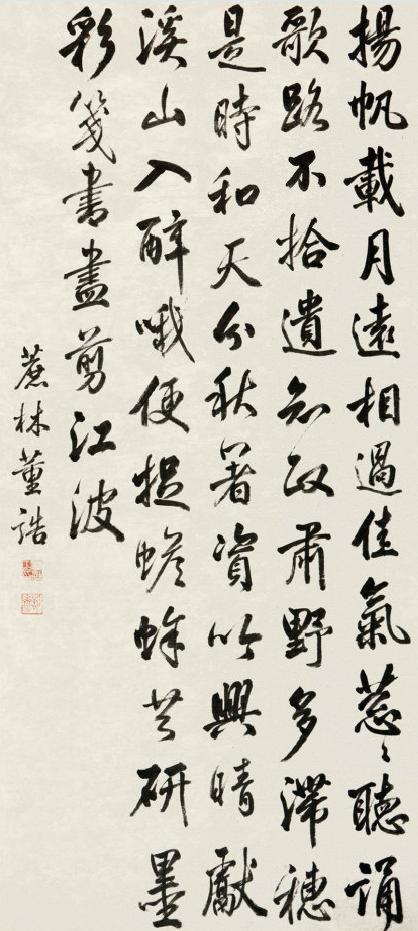 揚帆載月遠相過佳氣蔥〻聽誦
歌路不拾遺知政肅野多滯穗
是時和天分秋暑資吟興晴獻
溪山入醉哦便捉蟾蜍共研墨
彩箋書盡剪江波
蔗林董誥